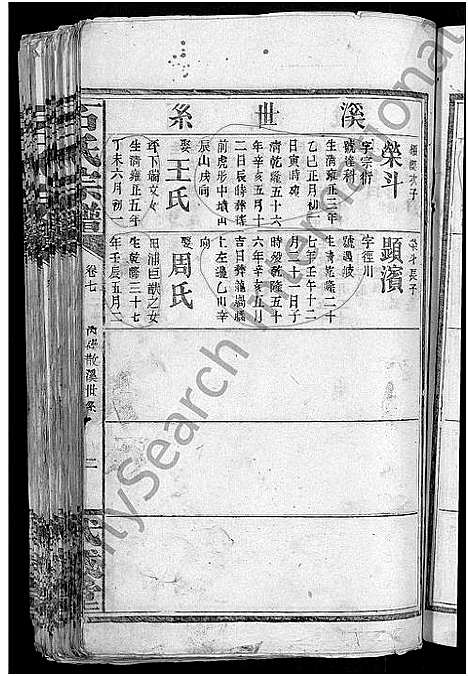 溪世系
榮斗
次子
字宗衍
號達利
生清雍正三年
乙巳正月初一
日寅時歿
清乾隆五十六
年辛亥五月十
二日辰時葬
前虎形中墳山
辰山戌向
娶王氏
坪下瑞文女
生清雍正五年
丁未六月初一
顯濱
榮斗長子
字徑川
號週波
生清乾隆二十
七年壬午十二
月二十一日子
時歿乾隆五十
六年辛亥五月
吉日葬龍塘
上左邊乙山辛
向
娶周氏
田浦巨猷之女
生乾隆三十七
年壬辰五月二
石氏宗譜
卷七
溪世系
二
FamilySearch International